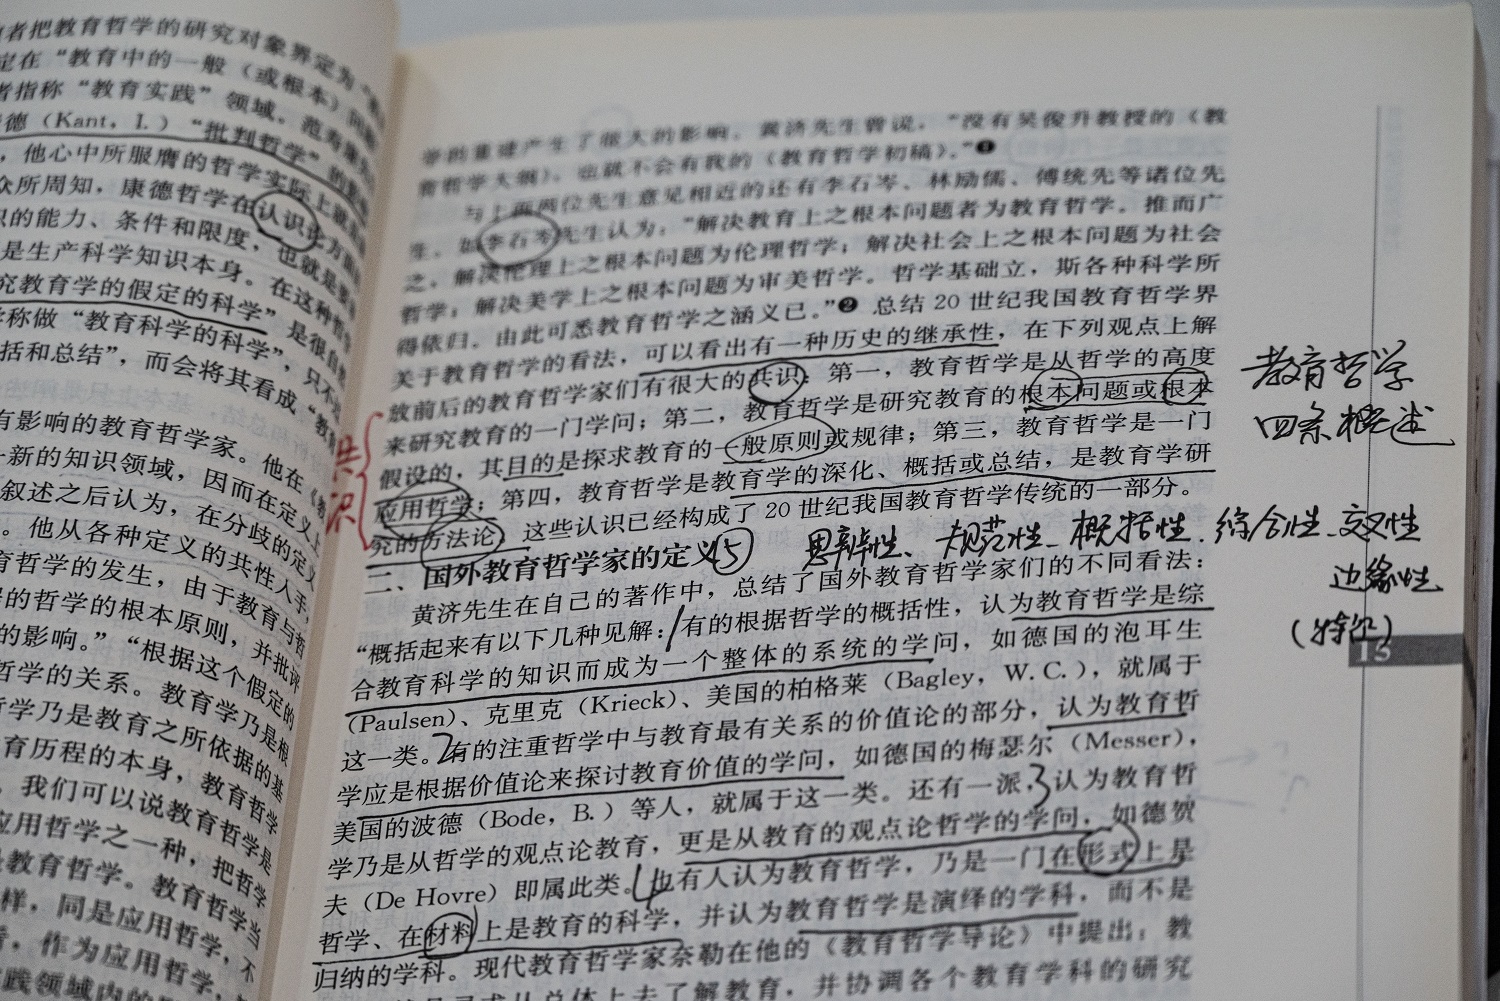 者把教育哲学的研究对象界定为
定在“教育中的一般（或根本）问题
者指称“教育实践”领域。范寿康
德（Kant，I.）“批判哲学”的
，他心中所服膺的哲学实际上就
众所周知，康德哲学在认识
识的能力、条件和限度，也就是
是生产科学知识本身。在这种
究教育学的假定的科学”是很自
称做“教育科学的科学”，只不
括和总结”，而会将其看成“教
有影响的教育哲学家。他在《教
新的知识领域，因而在定义上
叙述之后认为，在分歧的定义
。他从各种定义的共性入手，
育哲学的发生，由于教育与哲
的哲学的根本原则，并批评
的影响。”“根据这个假定的
哲学的关系。教育学乃是根
学乃是教育之所依据的基
育历程的本身，教育哲学
。我们可以说教育哲学是
应用哲学之一种，把哲学
教育哲学。教育哲学当
样，同是应用哲学，不
，作为应用哲学，
践领域内的
学的重建产生了很大的影响。黄济先生曾说，“没有吴俊升教授的《教
育哲学大纲》，也就不会有我的《教育哲学初稿》。”❶
与上面两位先生意见相近的还有李石岑、林励儒、傅统先等诸位先
生。如李石岑先生认为：“解决教育上之根本问题者为教育哲学。推而广
之，解决伦理上之根本问题为伦理哲学；解决社会上之根本问题为社会
哲学；解决美学上之根本问题为审美哲学。哲学基础立，斯各种科学所
得依归。由此可悉教育哲学之涵义已。”❷ 总结 20 世纪我国教育哲学界
关于教育哲学的看法，可以看出有一种历史的继承性，在下列观点上解
放前后的教育哲学家们有很大的共识：第一，教育哲学是从哲学的高度
来研究教育的一门学问；第二，教育哲学是研究教育的根本问题或根本
假设的，其目的是探求教育的一般原则或规律；第三，教育哲学是一门
应用哲学；第四，教育哲学是教育学的深化、概括或总结，是教育学研
究的方法论。这些认识已经构成了 20 世纪我国教育哲学传统的一部分。
共识
教育哲学
四条概述
二、国外教育哲学家的定义 ⑤ 思辨性、规范性、概括性、综合性、交叉性
边缘性
（特征）
黄济先生在自己的著作中，总结了国外教育哲学家们的不同看法：
“概括起来有以下几种见解：1有的根据哲学的概括性，认为教育哲学是综
合教育科学的知识而成为一个整体的系统的学问，如德国的泡耳生
（Paulsen）、克里克（Krieck）、美国的柏格莱（Bagley，W. C.），就属于
这一类。2有的注重哲学中与教育最有关系的价值论的部分，认为教育哲
学应是根据价值论来探讨教育价值的学问，如德国的梅瑟尔（Messer），
美国的波德（Bode，B.）等人，就属于这一类。还有一派，3认为教育哲
学乃是从哲学的观点论教育，更是从教育的观点论哲学的学问，如德贺
夫（De Hovre）即属此类。4也有人认为教育哲学，乃是一门在形式上是
哲学、在材料上是教育的科学，并认为教育哲学是演绎的学科，而不是
归纳的学科。现代教育哲学家奈勒在他的《教育哲学导论》中提出：教
从总体上去了解教育，并协调各个教育学科的研究
13